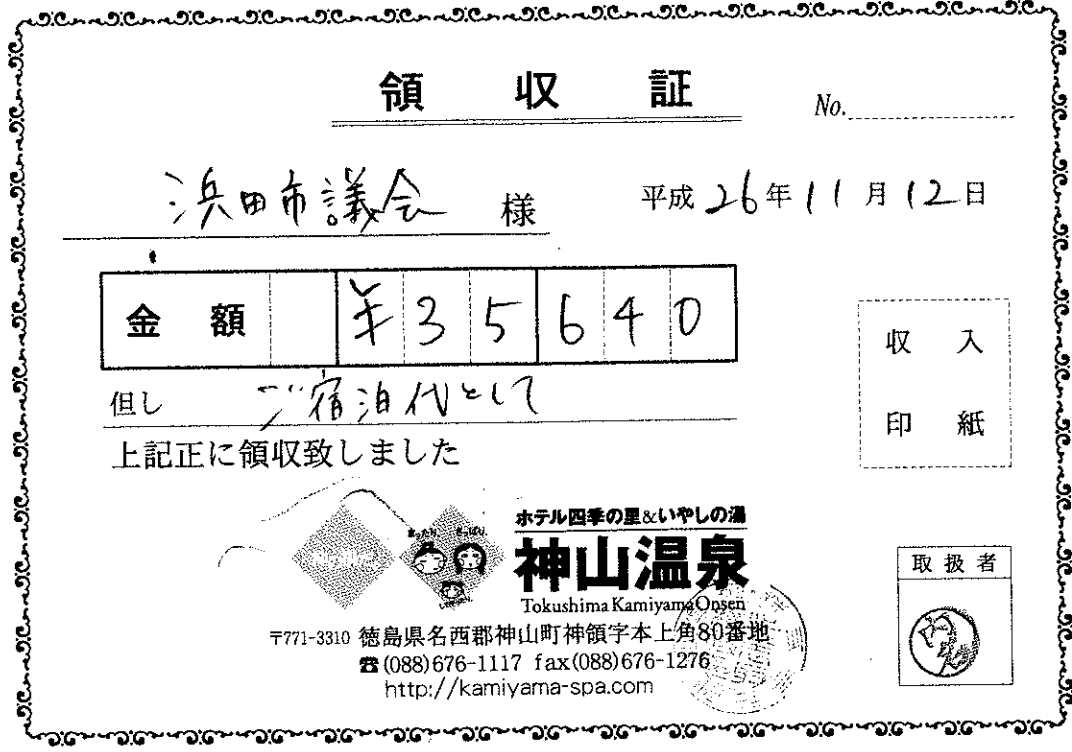 領収証
No.
浜田市議会 様
平成26年11月12日
金額 ¥35640
但し ご宿泊代として
上記正に領収致しました
収入
印紙
まったり さっぱり
ホテル四季の里&いやしの湯
神山温泉
Tokushima Kamiyama Onsen
〒771-3310 徳島県名西郡神山町神領字本上角80番地
☎(088)676-1117 fax(088)676-1276
http://kamiyama-spa.com
取扱者